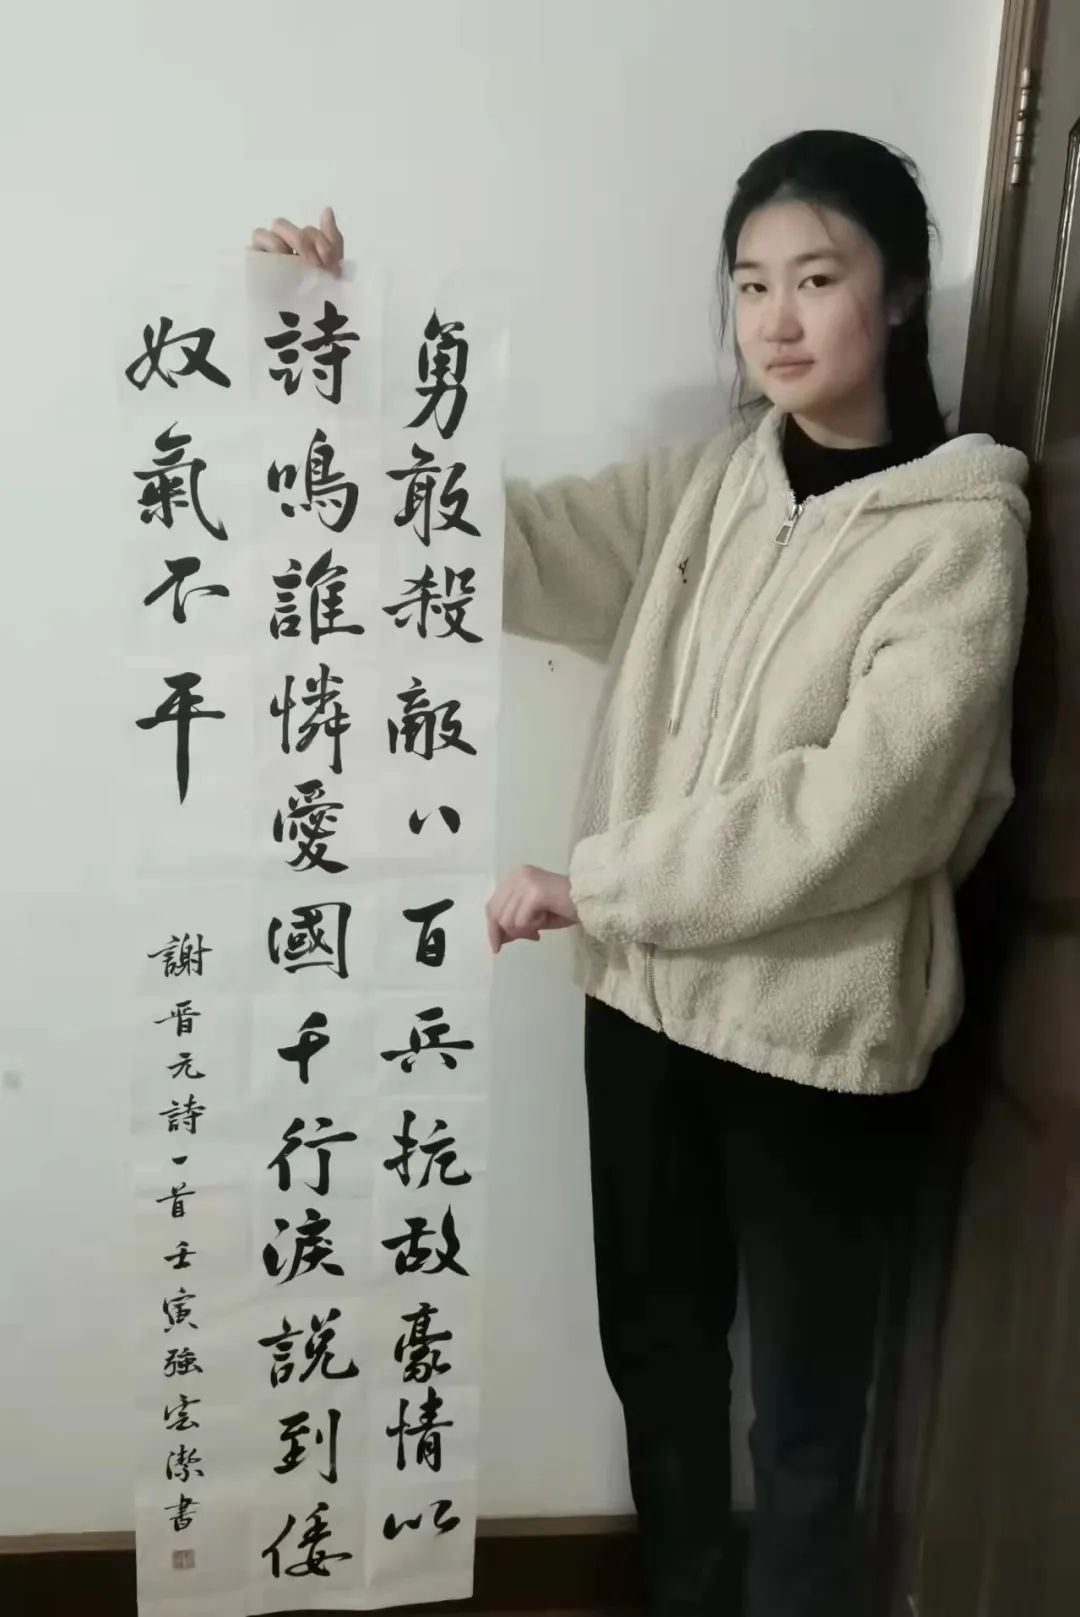 勇敢殺敵八百兵抗敵豪情以
詩鳴誰憐愛國千行淚説到倭
奴氣不平
謝晋元詩一首壬寅強雲潔書